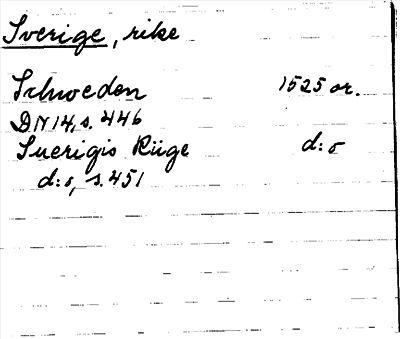 Sverige, rike
Schweden 1525 or.
DN 14, s. 446
Suerigis Rüge d:o
d:o, s. 451